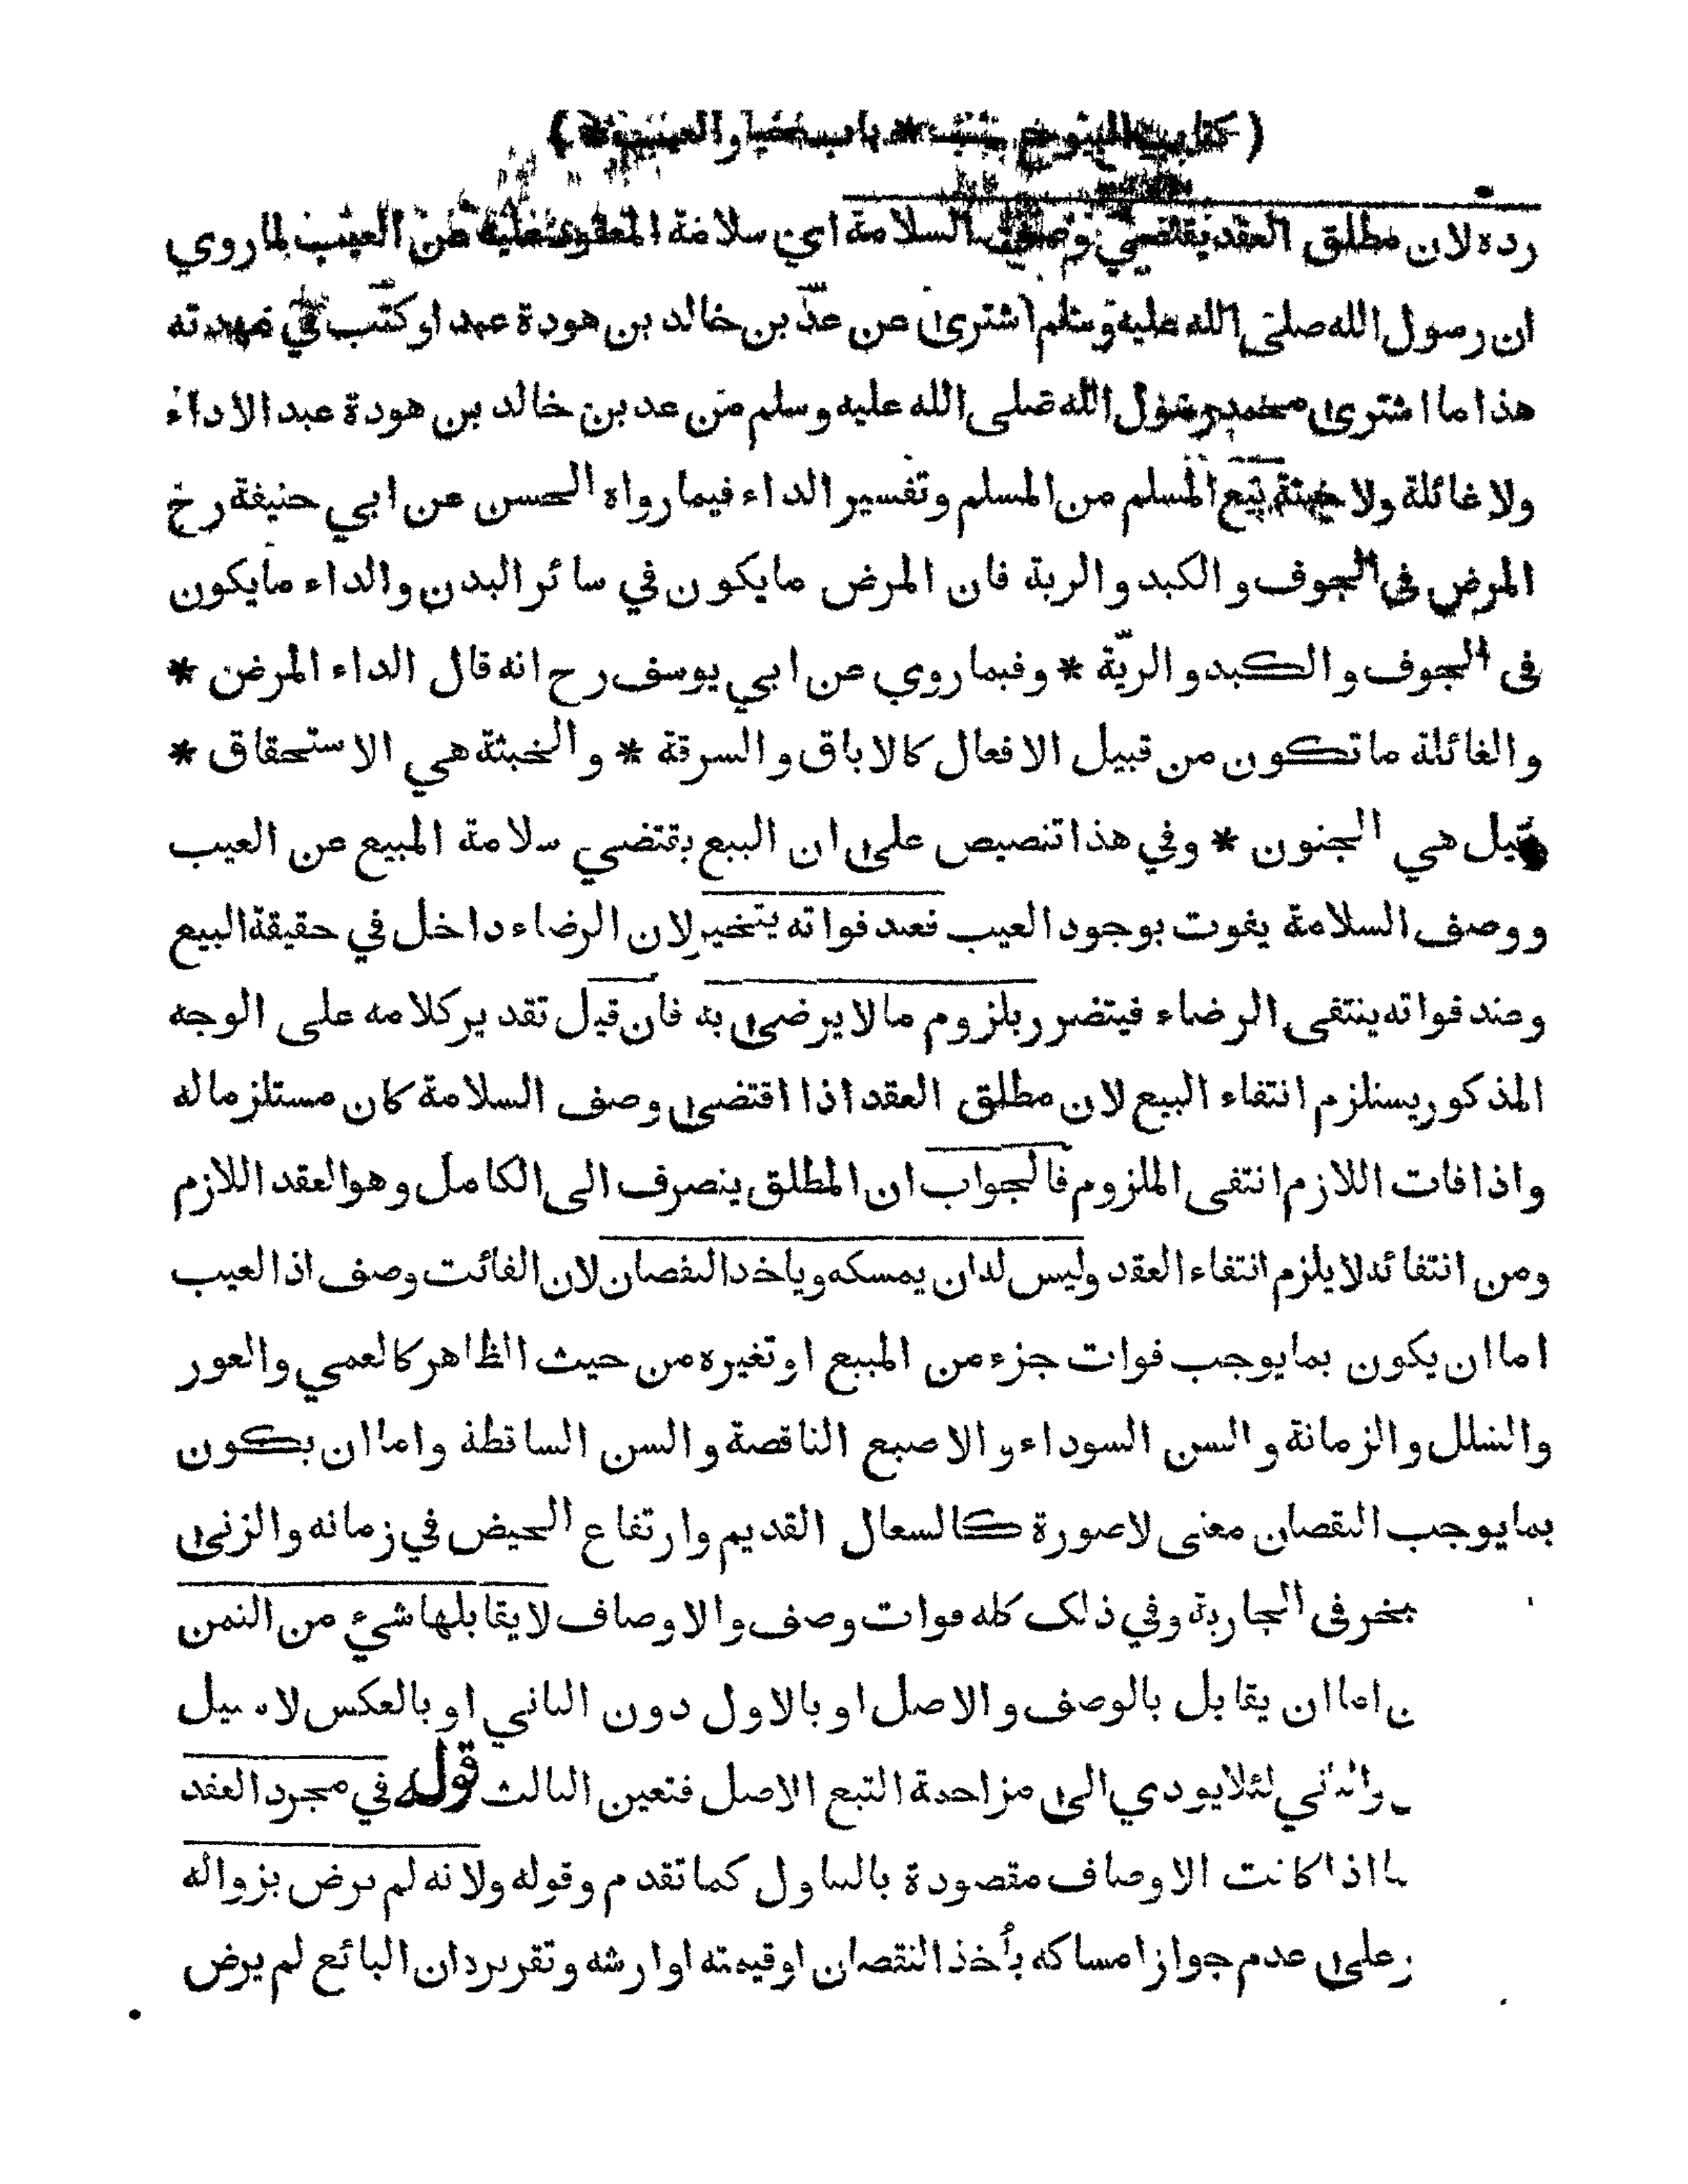 ( كتاب البيوع * باب خيار العيب )
رده لان مطلق العقد يقتضي وصف السلامة اي سلامة المعقود عليه عن العيب لما روي
ان رسول الله صلى الله عليه وسلم اشترى من عدّ بن خالد بن هودة عبدا وكتب في عهدته
هذا ما اشترى محمد رسول الله صلى الله عليه وسلم من عد بن خالد بن هودة عبدا لا داء
ولا غائلة ولا خبثة بيع المسلم من المسلم وتفسير الداء فيما رواه الحسن عن ابي حنيفة رح
المرض في الجوف والكبد والرية فان المرض ما يكون في سائر البدن والداء ما يكون
في الجوف والكبد والريّة * وفيما روي عن ابي يوسف رح انه قال الداء المرض *
والغائلة ما تكون من قبيل الافعال كالاباق والسرقة * والخبثة هي الاستحقاق *
قيل هي الجنون * وفي هذا تنصيص على ان البيع يقتضي سلامة المبيع عن العيب
ووصف السلامة يفوت بوجود العيب فعند فواته يتخير لان الرضاء داخل في حقيقة البيع
وعند فواته ينتفى الرضاء فيتضرر بلزوم ما لا يرضى به فان قيل تقدير كلامه على الوجه
المذكور يستلزم انتفاء البيع لان مطلق العقد اذا اقتضى وصف السلامة كان مستلزما له
واذا فات اللازم انتفى الملزوم فالجواب ان المطلق ينصرف الى الكامل وهو العقد اللازم
ومن انتفائه لا يلزم انتفاء العقد وليس له ان يمسكه وياخذ النقصان لان الفائت وصف اذ العيب
اما ان يكون بما يوجب فوات جزء من المبيع او تغيره من حيث الظاهر كالعمي والعور
والشلل والزمانة والسن السوداء والاصبع الناقصة والسن الساقطة واما ان يكون
بما يوجب النقصان معنى لا صورة كالسعال القديم وارتفاع الحيض في زمانه والزنى
بخر في الجارية وفي ذلك كله فوات وصف والاوصاف لا يقابلها شيء من الثمن
ن اما ان يقابل بالوصف والاصل او بالاول دون الثاني او بالعكس لا سبيل
والثاني لئلا يودي الى مزاحمة التبع الاصل فتعين الثالث قوله في مجرد العقد
ما اذا كانت الاوصاف مقصودة بالتناول كما تقدم وقوله ولانه لم يرض بزواله
على عدم جواز امساكه بأخذ النقصان او قيمته او ارشه وتقريره ان البائع لم يرض